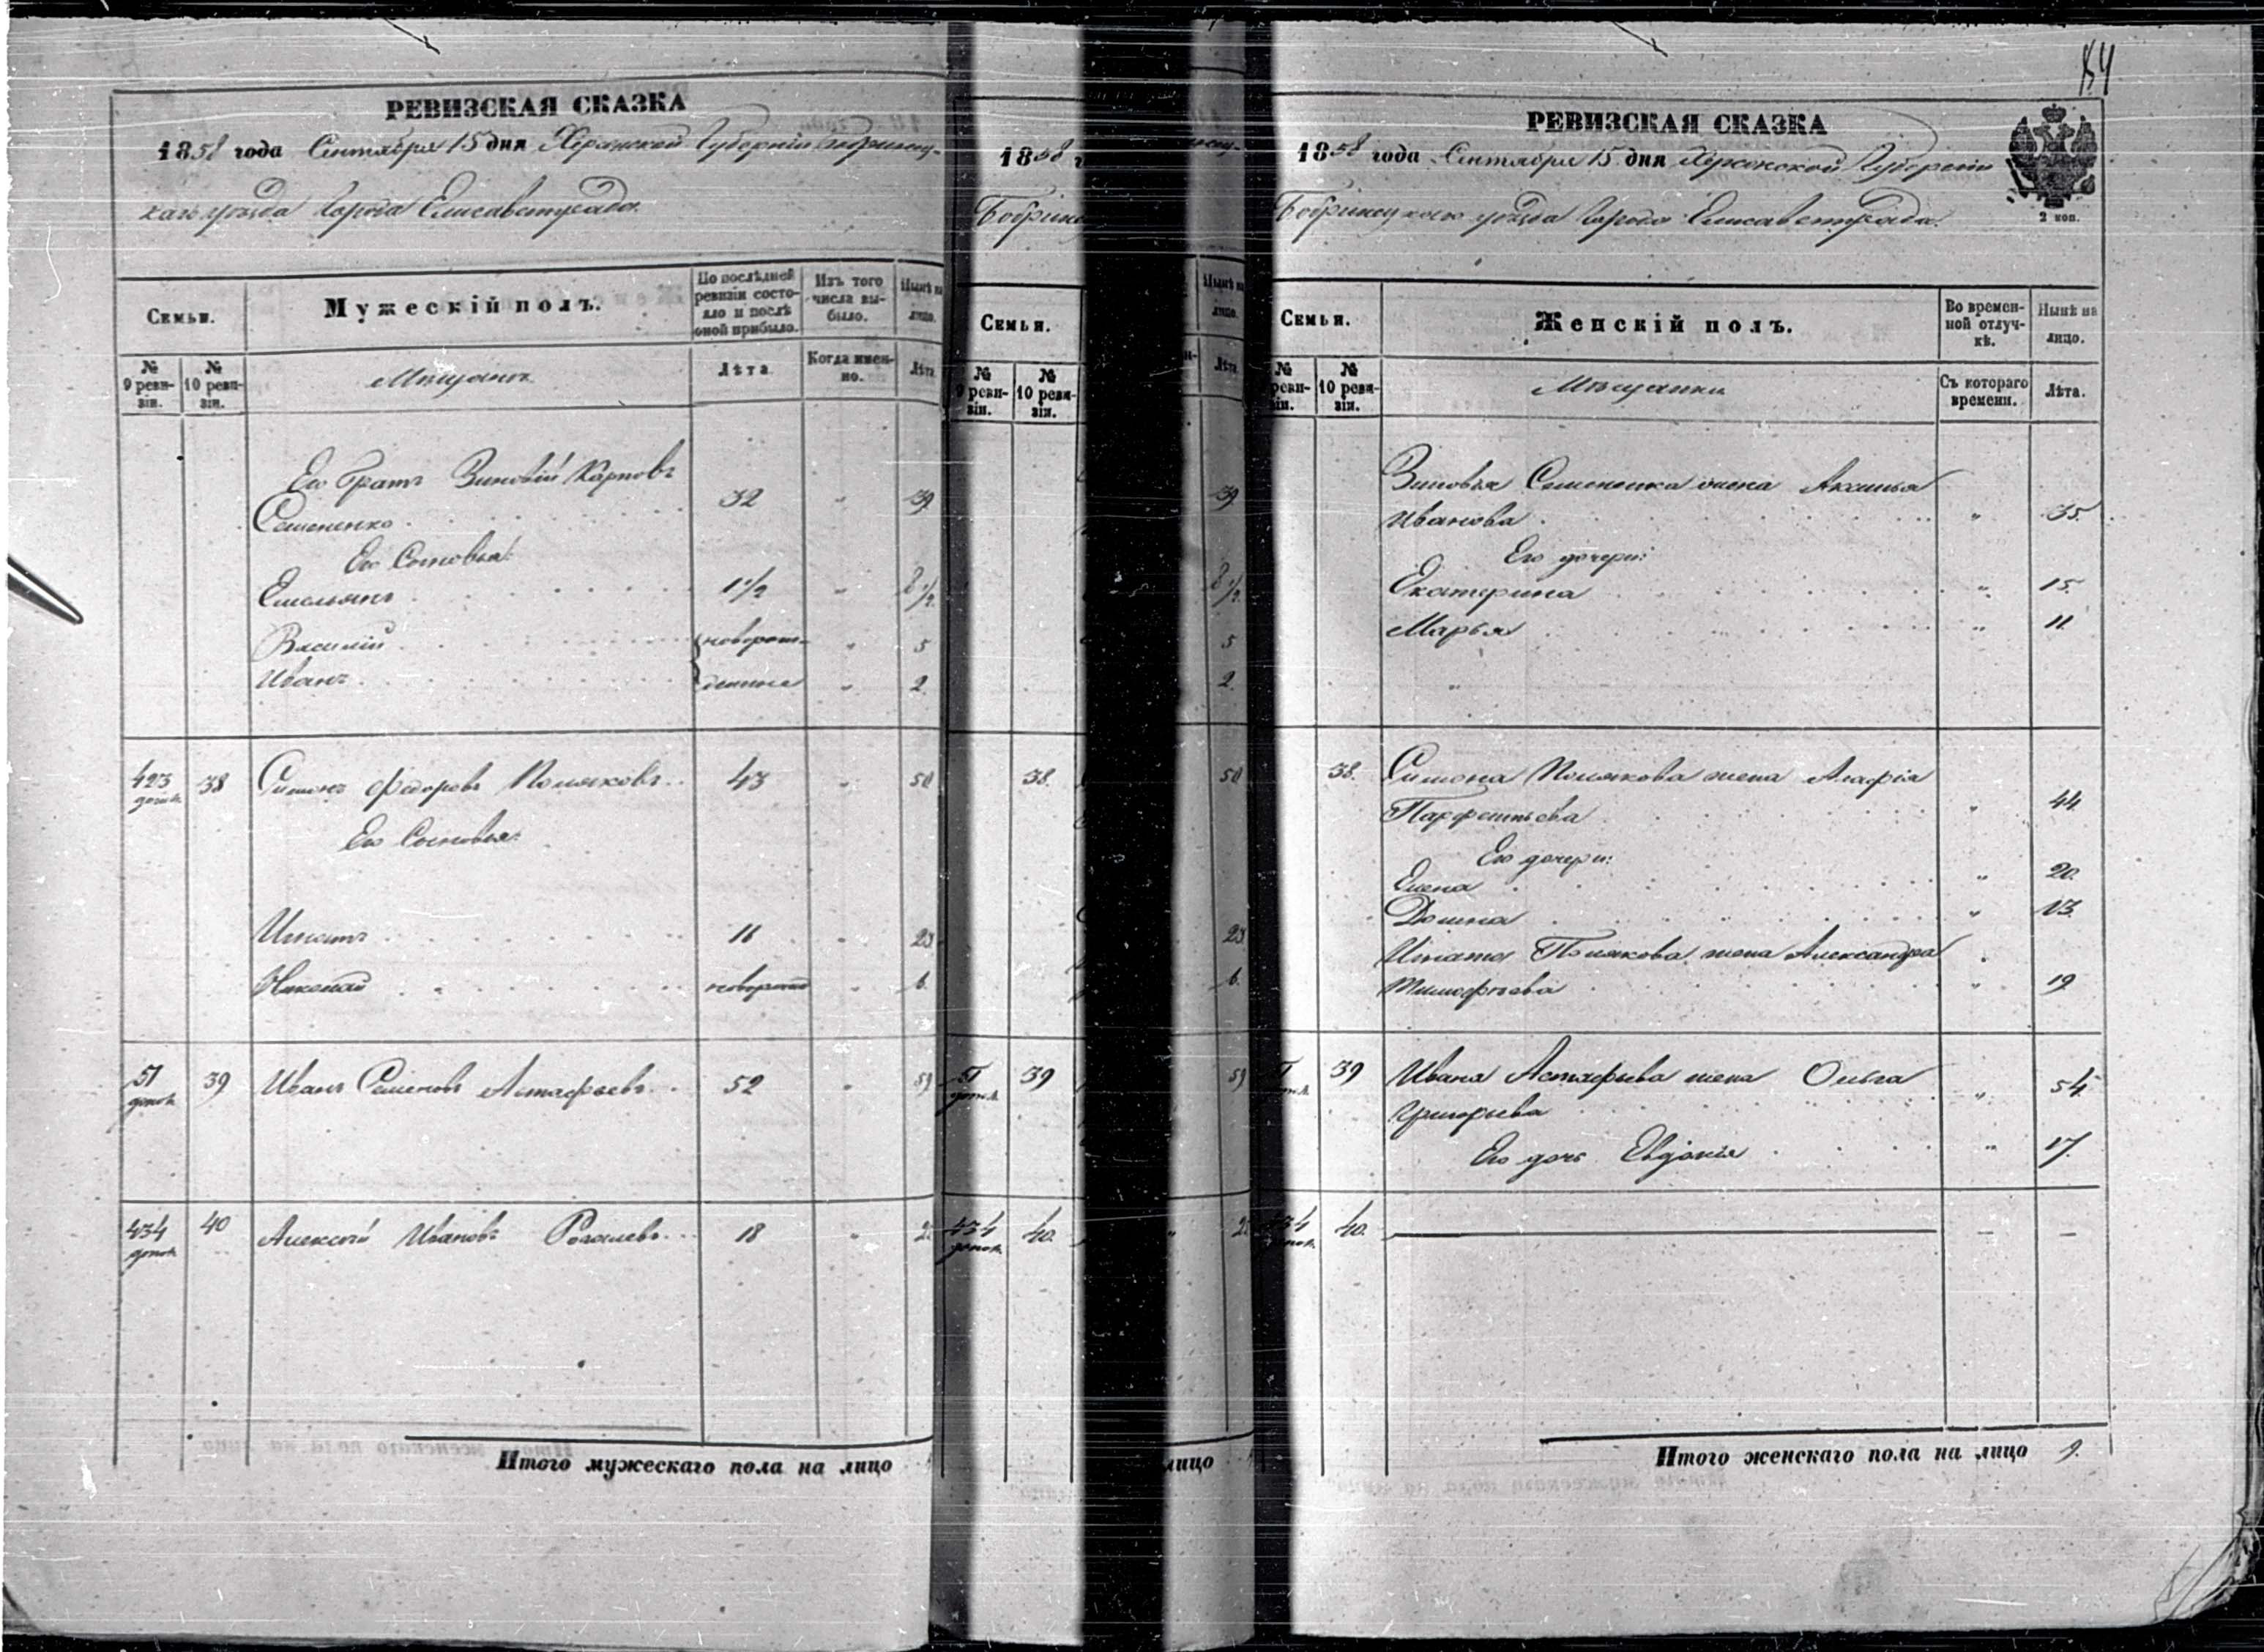 РЕВИЗСКАЯ СКАЗКА
1858 года Сентября 15 дня Херсонской Губерніи Бобринец-
каго уѣзда Города Елисаветграда.
Семьи.
Мужескій полъ.
По послѣдней ревизіи состояло и послѣ оной прибыло.
Изъ того числа выбыло.
Нынѣ на лицо.
№ 9 ревизіи.
№ 10 ревизіи.
Мѣщане
Лѣта
Когда именно.
Лѣта
Его братъ Зиновій Карповъ
Семененко 32 " 39
Его Сыновья:
Емельянъ 1 1/2 " 8 1/2
Василій новорож- " 5
Иванъ денные " 2
423 допол 38 Симонъ Федоровъ Поляковъ 43 " 50
Его Сыновья:
Игнатъ 16 " 23
Николай новорожд " 6
51 допол 39 Иванъ Семеновъ Астафьевъ 52 " 59
434 допол 40 Алексѣй Ивановъ 18 "
Итого мужескаго пола на лицо
1858 г
Бобринец
Семьи.
№ 9 ревизіи.
№ 10 ревизіи.
38.
51 допол 39
434 допол 40.
Нынѣ на лицо.
Лѣта
39
8 1/2
5
2.
50
23
6.
59
лицо
84
РЕВИЗСКАЯ СКАЗКА
1858 года Сентября 15 дня Херсонской Губерніи
Бобринецкаго уѣзда Города Елисаветграда.
2 коп.
Семьи.
Женскій полъ.
Во временной отлучкѣ.
Нынѣ на лицо.
№ 10 ревизіи.
Мѣщанки
Съ котораго времени.
Лѣта.
Зиновья Семененка жена Аксинья
Иванова " 35.
Его дочери:
Екатерина " 15.
Марья " 11.
38. Симона Полякова жена Агафія
Парфентьева " 44.
Его дочери:
Елена " 20.
Домна " 13.
Игната Полякова жена Александра
Тимофѣева " 19
39 Ивана Астафьева жена Ольга
Григорьева " 54.
Его дочь Евдокія " 17.
434 допол 40. — —
Итого женскаго пола на лицо 9.